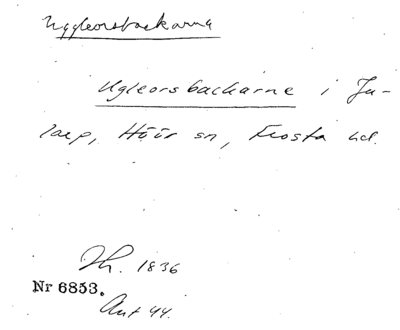 Uggleorsbackarna
Ugleorsbackarne i Ju-
larp, Höör sn, Frosta hd.
Th. 1836
Nr 6853.
Ant 44.